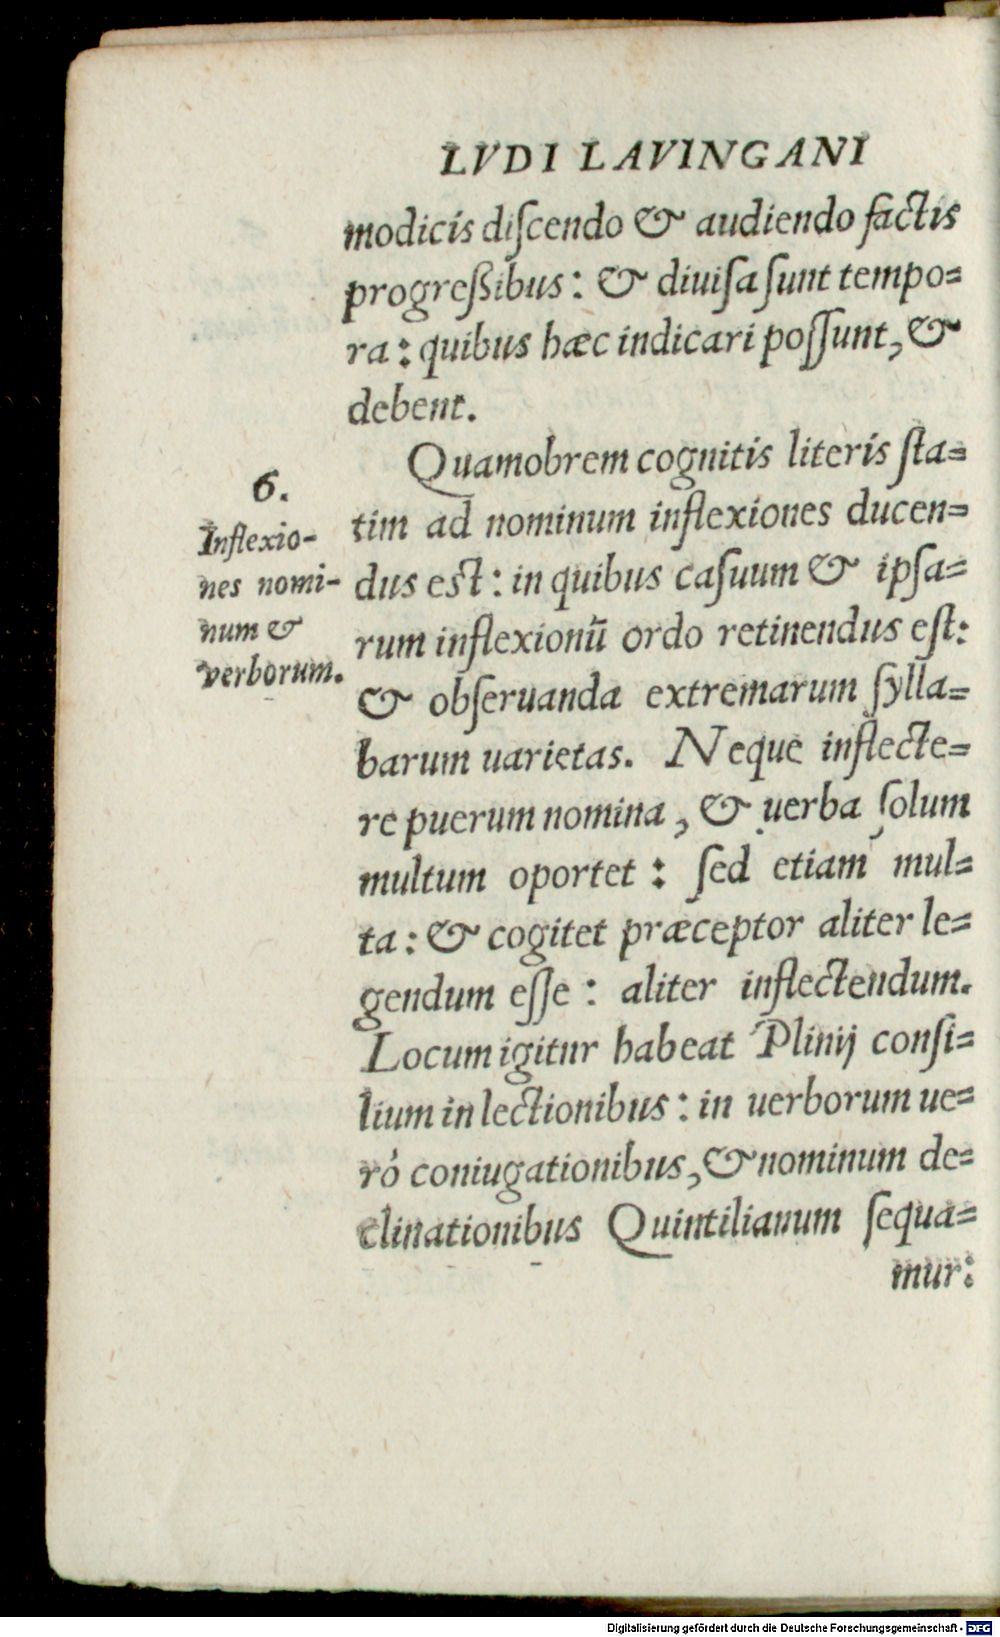 LVDI LAVINGANI
modicis diſcendo & audiendo factis
progreßibus: & diuiſa ſunt tempo=
ra: quibus hæc indicari poſſunt, &
debent.
Quamobrem cognitis literis ſta=
tim ad nominum inflexiones ducen=
dus est: in quibus caſuum & ipſa=
rum inflexionū ordo retinendus eſt:
& obſeruanda extremarum ſylla=
barum uarietas. Neque inflecte=
re puerum nomina, & uerba ſolum
multum oportet: ſed etiam mul=
ta: & cogitet præceptor aliter le=
gendum eſſe: aliter inflectendum.
Locum igitur habeat Plinij conſi=
lium in lectionibus: in uerborum ue=
rò coniugationibus, & nominum de=
clinationibus Quintilianum ſequa=
mur:
6.
Inflexio-
nes nomi-
num &
verborum.
Digitalisierung gefördert durch die Deutsche Forschungsgemeinschaft - DFG